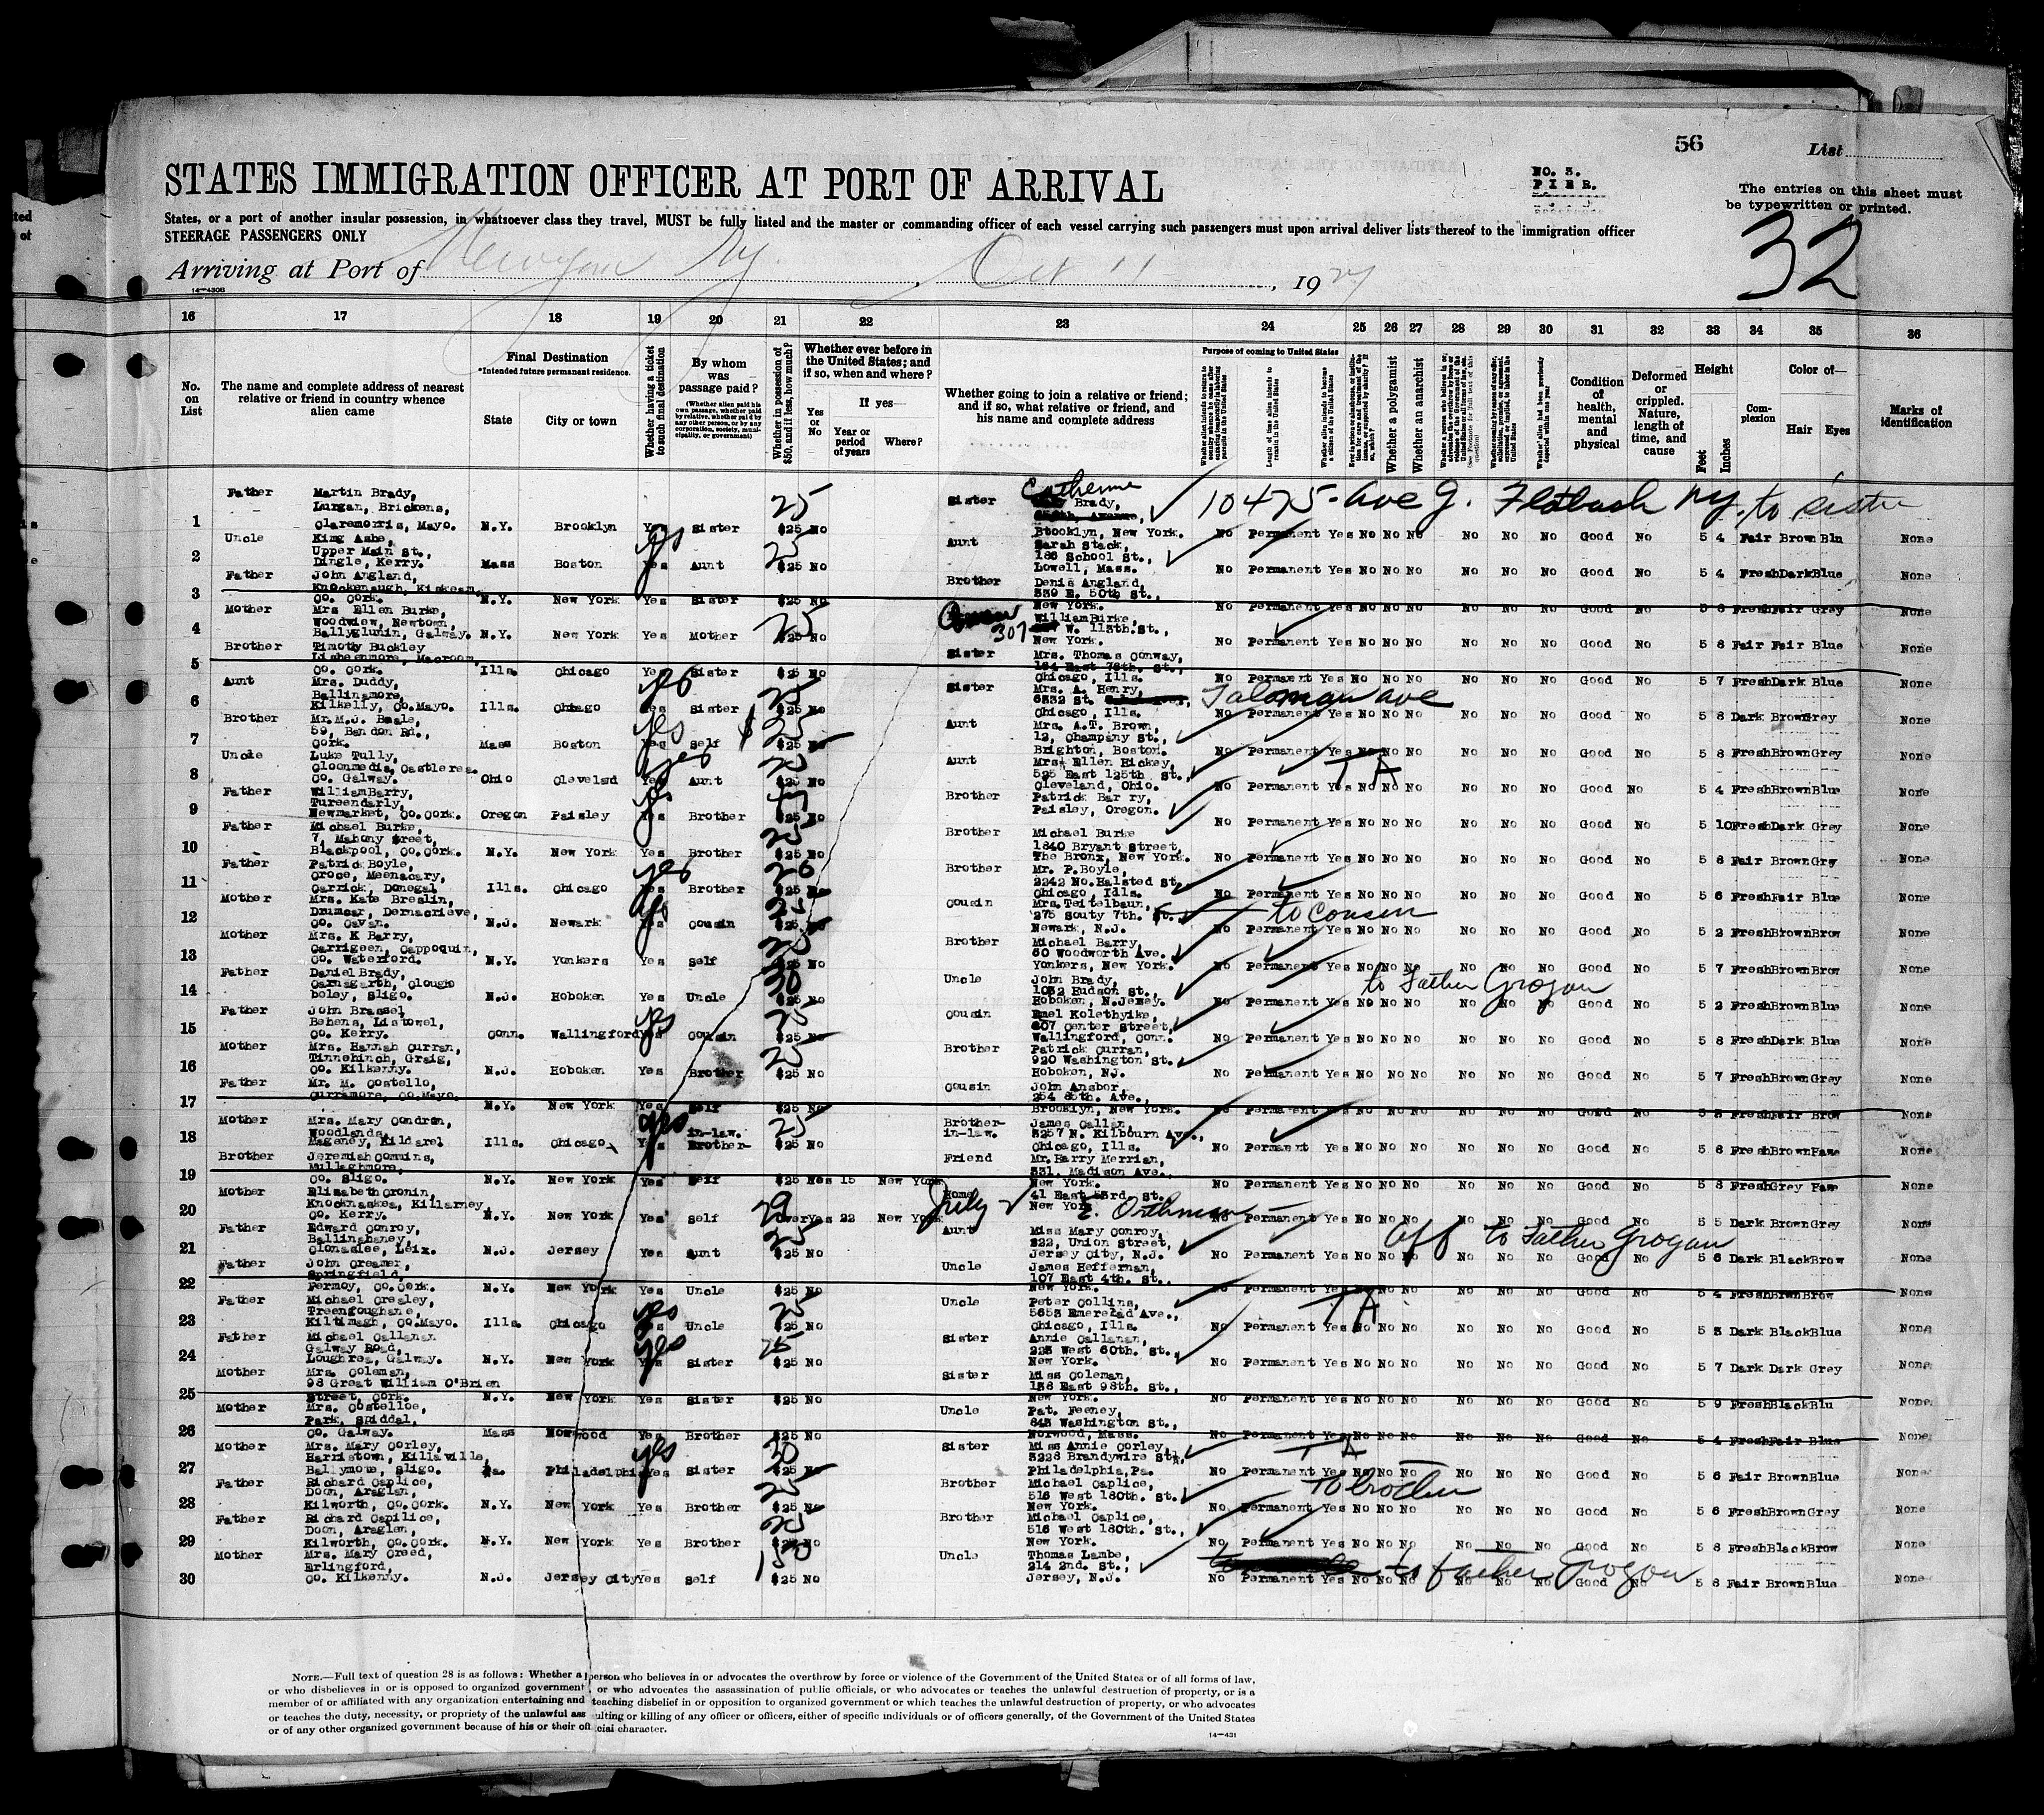 56
List
STATES IMMIGRATION OFFICER AT PORT OF ARRIVAL
NO. 3.
PIER.
The entries on this sheet must
be typewritten or printed.
States, or a port of another insular possession, in whatsoever class they travel, MUST be fully listed and the master or commanding officer of each vessel carrying such passengers must upon arrival deliver lists thereof to the immigration officer
STEERAGE PASSENGERS ONLY
32
Arriving at Port of New York Ny, Oct 11, 19
14—430B
16 17 18 19 20 21 22 23 24 25 26 27 28 29 30 31 32 33 34 35 36
No. on List
The name and complete address of nearest relative or friend in country whence alien came
Final Destination
*Intended future permanent residence.
State City or town
Whether having a ticket to such final destination
By whom was passage paid?
(Whether alien paid his own passage, whether paid by relative, whether paid by any other person, or by any corporation, society, municipality, or government)
Whether in possession of $50, and if less, how much?
Whether ever before in the United States; and if so, when and where?
Yes or No
If yes—
Year or period of years Where?
Whether going to join a relative or friend; and if so, what relative or friend, and his name and complete address
Purpose of coming to United States
Whether a polygamist
Whether an anarchist
Condition of health, mental and physical
Deformed or crippled. Nature, length of time, and cause
Height
Feet Inches
Complexion
Color of—
Hair Eyes
Marks of identification
1 Father Martin Brady, Lurgan, Brickens, Claremorris, Mayo. N.Y. Brooklyn Yes Sister $25 No 25 Sister Catherine Brady, Brooklyn, New York. 10475 - Ave J. Flatbush Ny. to sister No Permanent Yes No No No No No No Good No 5 4 Fair Brown Blu None
2 Uncle King Ashe, Upper Main St., Dingle, Kerry. Mass Boston Yes Aunt $25 No 25 Aunt Sarah Stack, 186 School St., Lowell, Mass. No Permanent Yes No No No No No No Good No 5 4 Fresh Dark Blue None
3 Father John Angland, Knockenaugh, Kiskeam, Co. Cork. N.Y. New York Yes Sister $25 No Brother Denis Angland, 339 E. 50th St., New York. No Permanent Yes No No No No No No Good No 5 8 Fresh Fair Grey None
4 Mother Mrs Ellen Burke, Woodview, Newtown, Ballyglunin, Galway. N.Y. New York Yes Mother $25 No 25 William Burke, 307 W. 113th. St., New York. No Permanent Yes No No No No No No Good No 5 8 Fair Fair Blue None
5 Brother Timoty Buckley Lisheenmore, Macroom, Co. Cork. Ills. Chicago Yes Sister $25 No Sister Mrs. Thomas Conway, 184 East 78th. St., Chicago, Ills. No Permanent Yes No No No No No No Good No 5 7 Fresh Dark Blue None
6 Aunt Mrs. Duddy, Ballinamore, Kilkelly, Co. Mayo. Ills. Chicago Yes Sister $25 No 25 Sister Mrs. A. Henry, 6332 St. Chicago, Ills. No Permanent Yes No No No No No No Good No 5 8 Dark Brown Grey None
7 Brother Mr. M.J. Basle, 59, Bandon Rd., Cork. Mass Boston Yes Self $25 No yes Aunt Mrs. A.T. Brown, 12, Champany St., Brighton, Boston. No Permanent Yes No No No No No No Good No 5 8 Fresh Brown Grey None
8 Uncle Luke Tully, Cloonmedia, Castlerea. Co. Galway. Ohio Cleveland Yes Aunt $25 No yes Aunt Mrs Ellen Hickey, 525 East 125th St., Cleveland, Ohio. TA No Permanent Yes No No No No No No Good No 5 4 Fresh Brown Blue None
9 Father William Barry, Tureendarly, Newmarket, Co. Cork. Oregon Paisley Yes Brother $25 No Brother Patrick Barry, Paisley, Oregon. 5 10 Fresh Dark Grey None
10 Father Michael Burke, 7, Mahony Street, Blackpool, Co. Cork. N.Y. New York Yes Brother $25 No Brother Michael Burke 1840 Bryant Street, The Bronx, New York. No Permanent Yes No No No No No No Good No 5 8 Fair Brown Grey None
11 Father Patrick Boyle, Croce, Meenacary, Carrick, Donegal Ills. Chicago Yes Brother $25 No yes Brother Mr. P. Boyle, 2242 No. Halsted St., Chicago, Ills. No Permanent Yes No No No No No No Good No 5 6 Fresh Brown Blue None
12 Mother Mrs. Kate Breslin, Drumcar, Dernacrieve, Co. Cavan. N.J. Newark Yes Cousin $25 No yes Cousin Mrs. Teitelbaum, 275 Souty 7th. St. Newark, N.J. to cousin No Permanent Yes No No No No No No Good No 5 2 Fresh Brown Brow None
13 Mother Mrs. K Barry, Carrigeen, Cappoquin, Co. Waterford. N.Y. Yonkers Yes Self $25 No Brother Michael Barry, 60 Woodworth Ave. Yonkers, New York. No Permanent Yes No No No No No No Good No 5 7 Fresh Brown Brow None
14 Father Daniel Brady, Carnagarth, Clougboley, Sligo. N.J. Hoboken Yes Uncle $25 No 30 Uncle John Brady, 1032 Hudson St., Hoboken, N. Jersey. to Father Grogan No Permanent Yes No No No No No No Good No 5 2 Fresh Brown Blue None
15 Father John Brassel Behens, Listowel, Co. Kerry. Conn. Wallingford Yes Cousin $25 No yes Cousin Emel Kolethyike, 807 Center Street, Wallingford, Conn. No Permanent Yes No No No No No No Good No 5 8 Fresh Dark Blue None
16 Mother Mrs. Hannah Curran, Tinnehinch, Graig, Co. Kilkenny. N.J. Hoboken Yes Brother $25 No 25 Brother Patrick Curran, 920 Washington St., Hoboken, N.J. No Permanent Yes No No No No No No Good No 5 7 Fresh Brown Grey None
17 Father Mr. M. Costello, Curramore, Co. Mayo. N.Y. New York Yes Self $25 No Cousin John Ansbor, 254 85th. Ave., Brooklyn, New York. No Permanent Yes No No No No No No Good No Fresh Fair Brow None
18 Mother Mrs. Mary Condron, Woodlands, Mageney, Kildarel Ills. Chicago Yes Brother-in-law. $25 No yes 25 Brother-in-law. James Callan, 3257 N. Kilbourn Ave., Chicago, Ills. No Permanent Yes No No No No No No Good No 5 8 Fresh Brown Fawn None
19 Brother Jeremiah Commins, Mullaghmore, Co. Sligo. N.Y. New York Yes Self $25 Yes 15 New York Friend Mr. Harry Merrian, 331. Madison Ave., New York. No Permanent Yes No No No No No No Good No 5 8 Fresh Grey Fawn None
20 Mother Elizabeth Cronin, Knocknaskea, Killarney, Co. Kerry. N.Y. New York Yes Self Yes 22 New York July Home 41 East 53rd. St., New York 5 5 Dark Brown Grey None
21 Father Edward Conroy, Ballinahaney, Clonaslee, Leix. N.J. Jersey Yes Aunt $25 No 25 Aunt Miss Mary Conroy, 322, Union Street, Jersey City, N.J. off to Father Grogan No Permanent Yes No No No No No No Good No 5 6 Dark Black Brow None
22 Father John Creamer, Springfield, Fermoy, Co. Cork. N.Y. New York Yes Uncle $25 No Uncle James Heffernan, 107 East 4th. St., New York. No Permanent Yes No No No No No No Good No 5 4 Fresh Brwn Brow None
23 Father Michael Crealey, Treengoughane, Kiltimagh, Co. Mayo. Ills. Chicago Yes Uncle $25 No yes 25 Uncle Peter Collins, 5653 Emerelad Ave., Chicago, Ills. TA No Permanent Yes No No No No No No Good No 5 3 Dark Black Blue None
24 Father Michael Callanan Galway Road, Loughrea, Galway. N.Y. New York Yes Sister $25 No yes 25 Sister Annie Callanan, 223 West 60th. St., New York. No Permanent Yes No No No No No No Good No 5 7 Dark Dark Grey None
25 Mother Mrs. Coleman, 98 Great William O'Brien Street, Cork. N.Y. New York Yes Sister $25 No Sister Miss Coleman, 138 East 98th. St., New York. No Permanent Yes No No No No No No Good No 5 9 Fresh Black Blu None
26 Mother Mrs. Costelloe, Park, Spiddal, Co. Galway. Mass Norwood Yes Brother $25 No Uncle Pat. Feeney, 843 Washington St., Norwood, Mass. No Permanent Yes No No No No No No Good No 5 4 Fresh Fair Blue None
27 Mother Mrs. Mary Corley, Harristown, Killaville, Ballymote, Sligo. Pa. Philadelphia Yes Sister $25 No yes 30 Sister Miss Annie Corley, 3228 Brandywire St., Philadelphia, Pa. TA No Permanent Yes No No No No No No Good No 5 6 Fair Brown Blue None
28 Father Richard Caplice, Doon, Araglen, Kilworth, Co. Cork. N.Y. New York Yes Brother $25 No 25 Brother Michael Caplice, 516 West 180th. St., New York. To brother No Permanent Yes No No No No No No Good No 5 6 Fresh Brown Grey None
29 Father Richard Capilice, Doon, Araglen, Kilworth, Co. Cork. N.Y. New York Yes Brother $25 No 25 Brother Michael Caplice, 516 West 180th. St., New York. No Permanent Yes No No No No No No Good No 5 8 Fresh Black Brow None
30 Mother Mrs. Mary Creed, Erlingford, Co. Kilkenny. N.J. Jersey City Yes Self $25 No Uncle Thomas Lambe, 214 2nd. St., Jersey, N.J. to father Grogan No Permanent Yes No No No No No No Good No 5 8 Fair Brown Blue None
NOTE.—Full text of question 28 is as follows: Whether a person who believes in or advocates the overthrow by force or violence of the Government of the United States or of all forms of law,
or who disbelieves in or is opposed to organized government, or who advocates the assassination of public officials, or who advocates or teaches the unlawful destruction of property, or is a
member of or affiliated with any organization entertaining and teaching disbelief in or opposition to organized government or which teaches the unlawful destruction of property, or who advocates
or teaches the duty, necessity, or propriety of the unlawful assaulting or killing of any officer or officers, either of specific individuals or of officers generally, of the Government of the United States
or of any other organized government because of his or their official character.
14—431